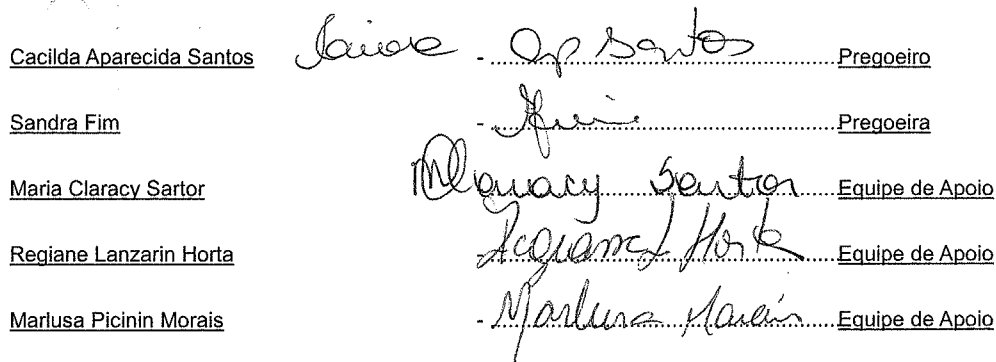 Cacilda Aparecida Santos - Ap Santos Pregoeiro
Sandra Fim - Pregoeira
Maria Claracy Sartor MClaracy Sartor Equipe de Apoio
Regiane Lanzarin Horta Horta Equipe de Apoio
Marlusa Picinin Morais - Marlusa Equipe de Apoio